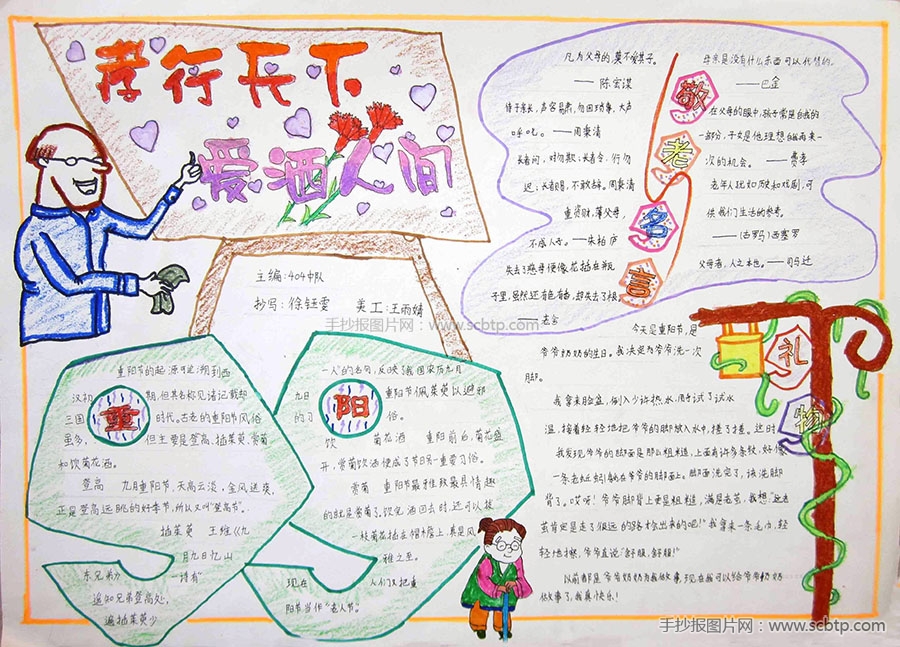 孝行天下
爱洒人间
主编：404中队
抄写：徐钰雯 美工：王雨婧
手抄报图片网：www.scbtp.com
敬老名言
凡为父母的莫不爱其子。
——陈宏谋
侍于亲长，声容易肃，勿因琐事，大声
呼叱。——周秉清
长者问，对勿欺；长者令，行勿
迟；长者赐，不敢辞。周秉清
重资财，薄父母，
不成人子。——朱柏庐
失去了慈母便像花插在瓶
子里，虽然还有色有香，却失去了根
——老舍
母亲是没有什么东西可以代替的。
——巴金
在父母的眼中，孩子常是自我的
一部分，子女是他理想自我再来一
次的机会。——费孝
老年人犹如历史和戏剧，可
供我们生活的参考。
——(古罗马)西塞罗
父母者，人之本也。——司马迁
重阳
重阳节的起源可追溯到西
汉初期，但其名称见诸记载却
三国时代。古老的重阳节风俗
虽多，但主要是登高、插茱萸、赏菊
和饮菊花酒。
登高 九月重阳节，天高云淡，金风送爽，
正是登高远眺的好季节，所以又叫“登高节”。
插茱萸 王维《九
月九日忆山
东兄弟》诗有“
遥知兄弟登高处，
遍插茱萸少
一人”的名句，反映了我国宋历九月
九日重阳节佩茱萸以避邪
的习俗。
饮菊花酒 重阳前后，菊花盛
开，赏菊饮酒便成了节日另一重要习俗。
赏菊 重阳节最雅致最具情趣
的就是赏菊了。饮完酒回去时，还可以拔
一枝菊花插在帽檐上，真是风
雅之至。
现在人们又把重
阳节当作“老人节”。
礼物
今天是重阳节，是
爷爷奶奶的生日。我决定为爷爷洗一次
脚。
我拿来脸盆，倒入少许热水，用手试了试水
温，接着轻轻地把爷爷的脚放入水中，搓了搓。这时
我发现爷爷的脚面是那么粗糙，上面有许多条纹，好像
一条老蚯蚓躺在爷爷的脚面上。脚面洗完了，该洗脚
背了。哎呀！爷爷脚背上更是粗糙，满是老茧，我想“这老
茧肯定是走了很远的路才检出来的吧！”我拿来一条毛巾，轻
轻地擦，爷爷直说“舒服，舒服！”
以前都是爷爷奶奶为我做事，现在我可以给爷爷奶奶
做事了，我真快乐！
手抄报图片网：www.scbtp.com